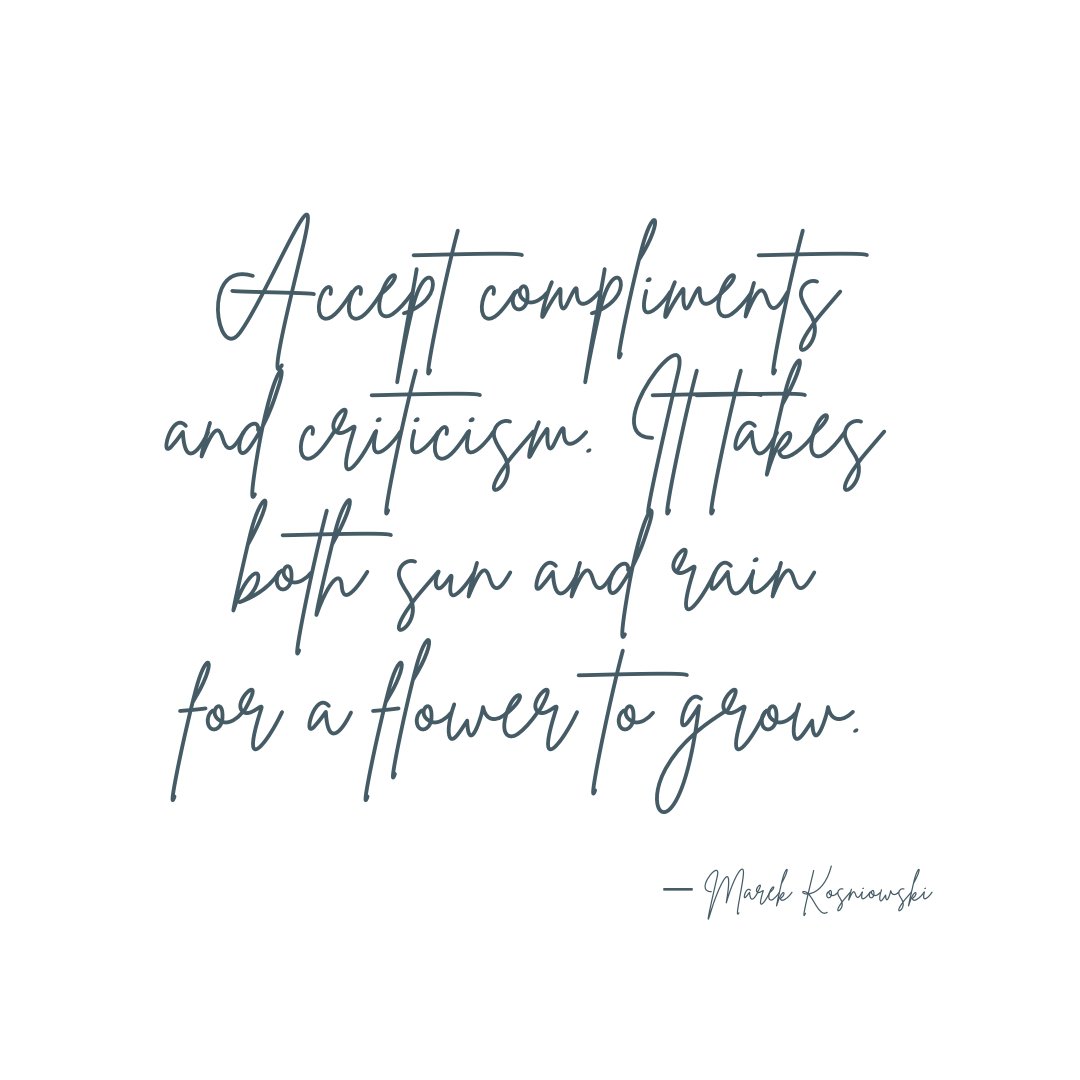 Accept compliments
and criticism. It takes
both sun and rain
for a flower to grow.
— Marek Kosniowski